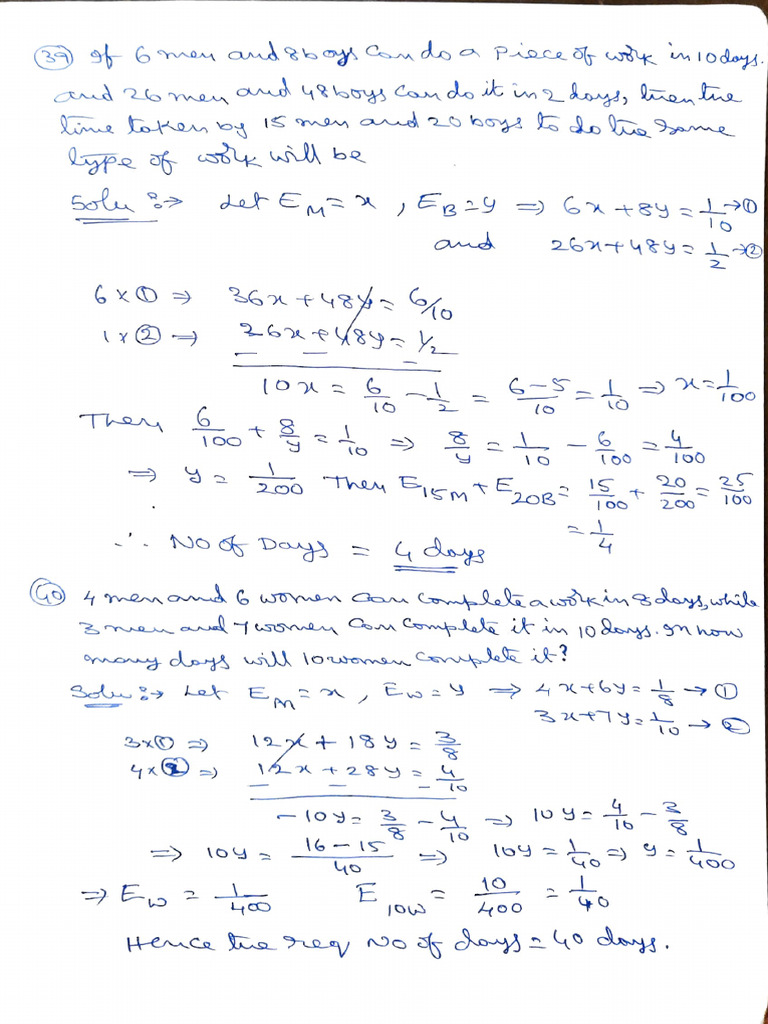 39 If 6 men and 8 boys can do a piece of work in 10 days.
and 26 men and 48 boys can do it in 2 days, then the
time taken by 15 men and 20 boys to do the same
type of work will be
Solu :→ Let E_M = x , E_B = y ⇒ 6x + 8y = 1/10 → ①
and 26x + 48y = 1/2 → ②
6 × ① ⇒ 36x + 48y = 6/10
1 × ② ⇒ 26x + 48y = 1/2
10x = 6/10 - 1/2 = (6-5)/10 = 1/10 ⇒ x = 1/100
Then 6/100 + 8/y = 1/10 ⇒ 8/y = 1/10 - 6/100 = 4/100
⇒ y = 1/200 Then E_15M + E_20B = 15/100 + 20/200 = 25/100
= 1/4
∴ No of Days = 4 days
40 4 men and 6 women can complete a work in 8 days, while
3 men and 7 women can complete it in 10 days. In how
many days will 10 women complete it?
Solu :→ Let E_M = x , E_W = y ⇒ 4x + 6y = 1/8 → ①
3x + 7y = 1/10 → ②
3 × ① ⇒ 12x + 18y = 3/8
4 × ② ⇒ 12x + 28y = 4/10
-10y = 3/8 - 4/10 ⇒ 10y = 4/10 - 3/8
⇒ 10y = (16 - 15)/40 ⇒ 10y = 1/40 ⇒ y = 1/400
⇒ E_W = 1/400 E_10W = 10/400 = 1/40
Hence the req No of days = 40 days.